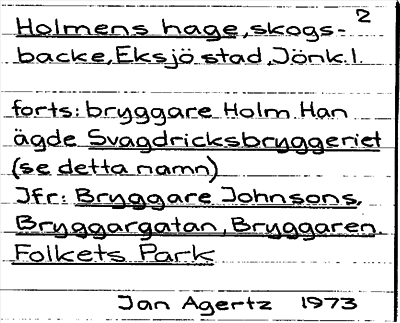 2
Holmens hage, skogs-
backe, Eksjö stad, Jönk. l.
forts: bryggare Holm. Han
ägde Svagdricksbryggeriet
(se detta namn)
Jfr: Bryggare Johnsons,
Bryggargatan, Bryggaren.
Folkets Park
Jan Agertz 1973